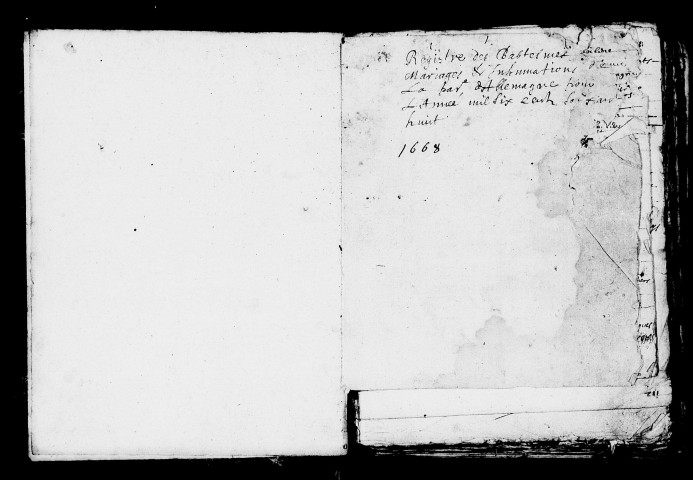 Registre des Baptesmes
Mariages & Inhumations
La par. d'Allemagne pour
L'Annee mil six cents soixante
huit
1668